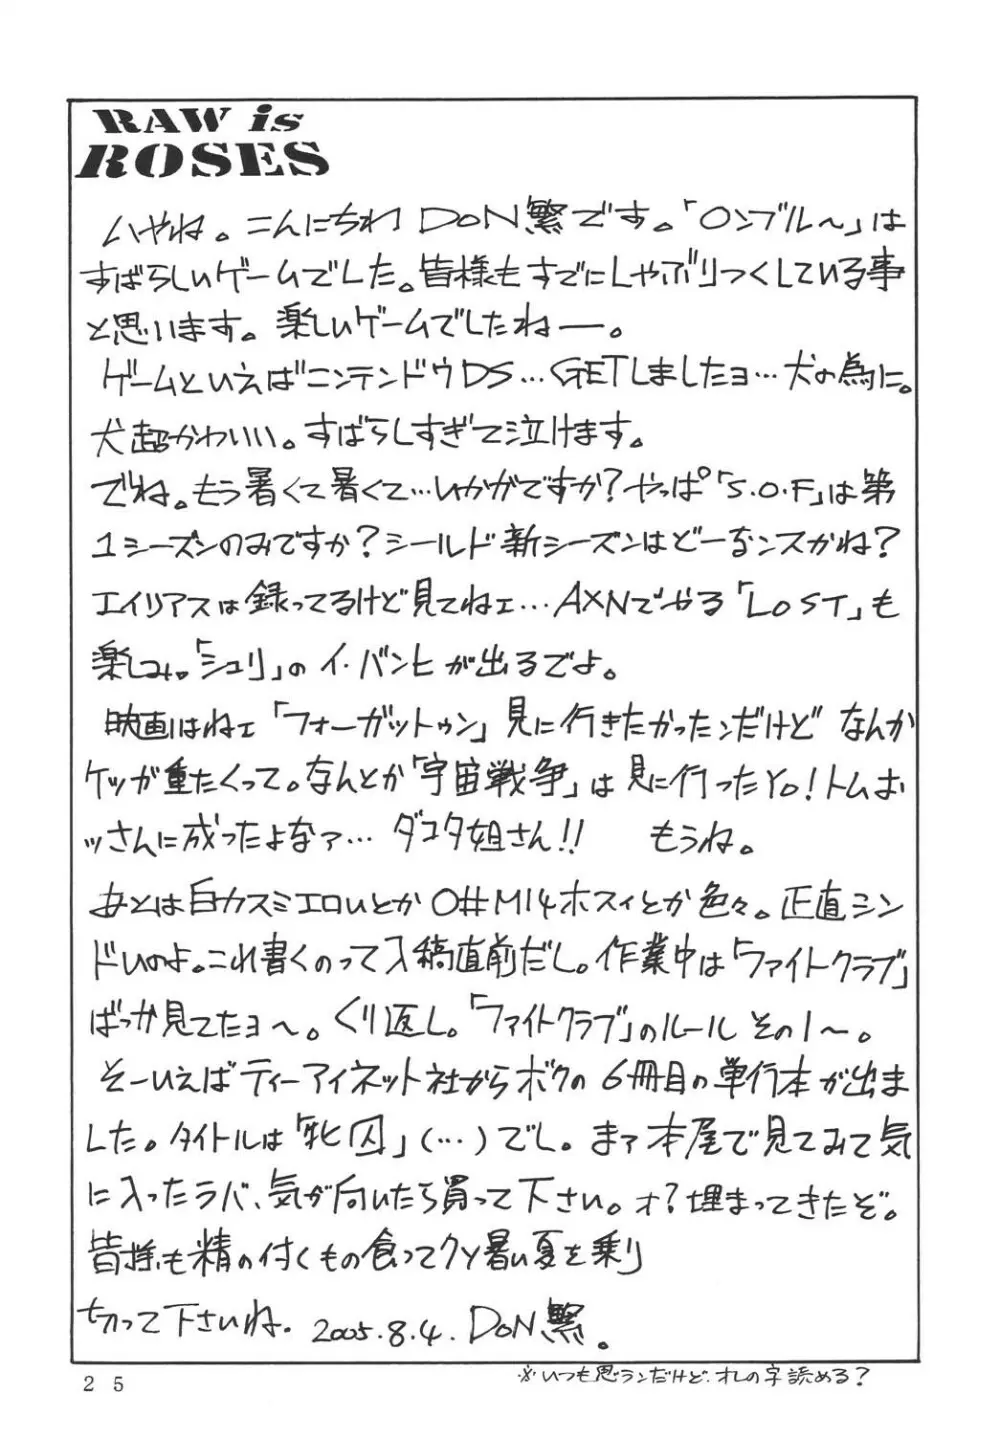 RAW is
ROSES
いやね。こんにちわ DoN繁です。「ロンブル〜」は
すばらしいゲームでした。皆様もすでにしゃぶりつくしている事
と思います。楽しいゲームでしたねー。
ゲームといえばニンテンドウDS…GETしましたョ…犬の為に。
犬超かわいい。すばらしすぎて泣けます。
でね。もう暑くて暑くて…いかがですか？やっぱ「S.O.F」は第
1シーズンのみですか？シールド新シーズンはどーなンスかね？
エイリアスは録ってるけど見てねェ…AXNでやる「LOST」も
楽しみ。「シュリ」のイ・バンヒが出るでよ。
映画はねェ「フォーガットゥン」見に行きたかったンだけど なんか
ケツが重たくって。なんとか「宇宙戦争」は見に行ったYo！トムお
ッさんに成ったよなァ… ダコタ姐さん!! もうね。
あとは白カスミエロいとか O#M14ホスィとか色々。正直シン
ドいのよ。これ書くのって入稿直前だし。作業中は「ファイトクラブ」
ばっか見てたョ〜。くり返し。「ファイトクラブ」のルール その1〜。
そーいえばティーアイネット社からボクの 6冊目の単行本が出ま
した。タイトルは「牝囚」(…)でし。まァ本屋で見てみて気
に入ったラバ、気が向いたら買って下さい。オ？埋まってきたぞ。
皆様も精の付くもの食ってクソ暑い夏を乗り
切って下さいね. 2005.8.4. DoN繁。
※いつも思うンだけど、オレの字読める？
25